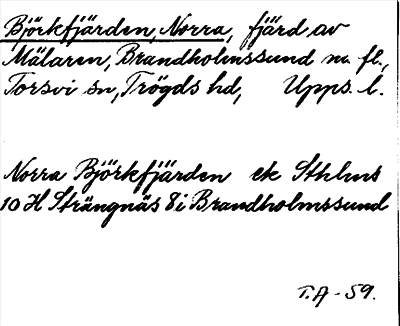 Björkfjärden, Norra, fjärd av
Mälaren, Brandholmssund m. fl.,
Torsvi sn, Trögds hd, Upps. l.
Norra Björkfjärden ek Sthlms
10 H Strängnäs 8i Brandholmssund
T.A - 59.